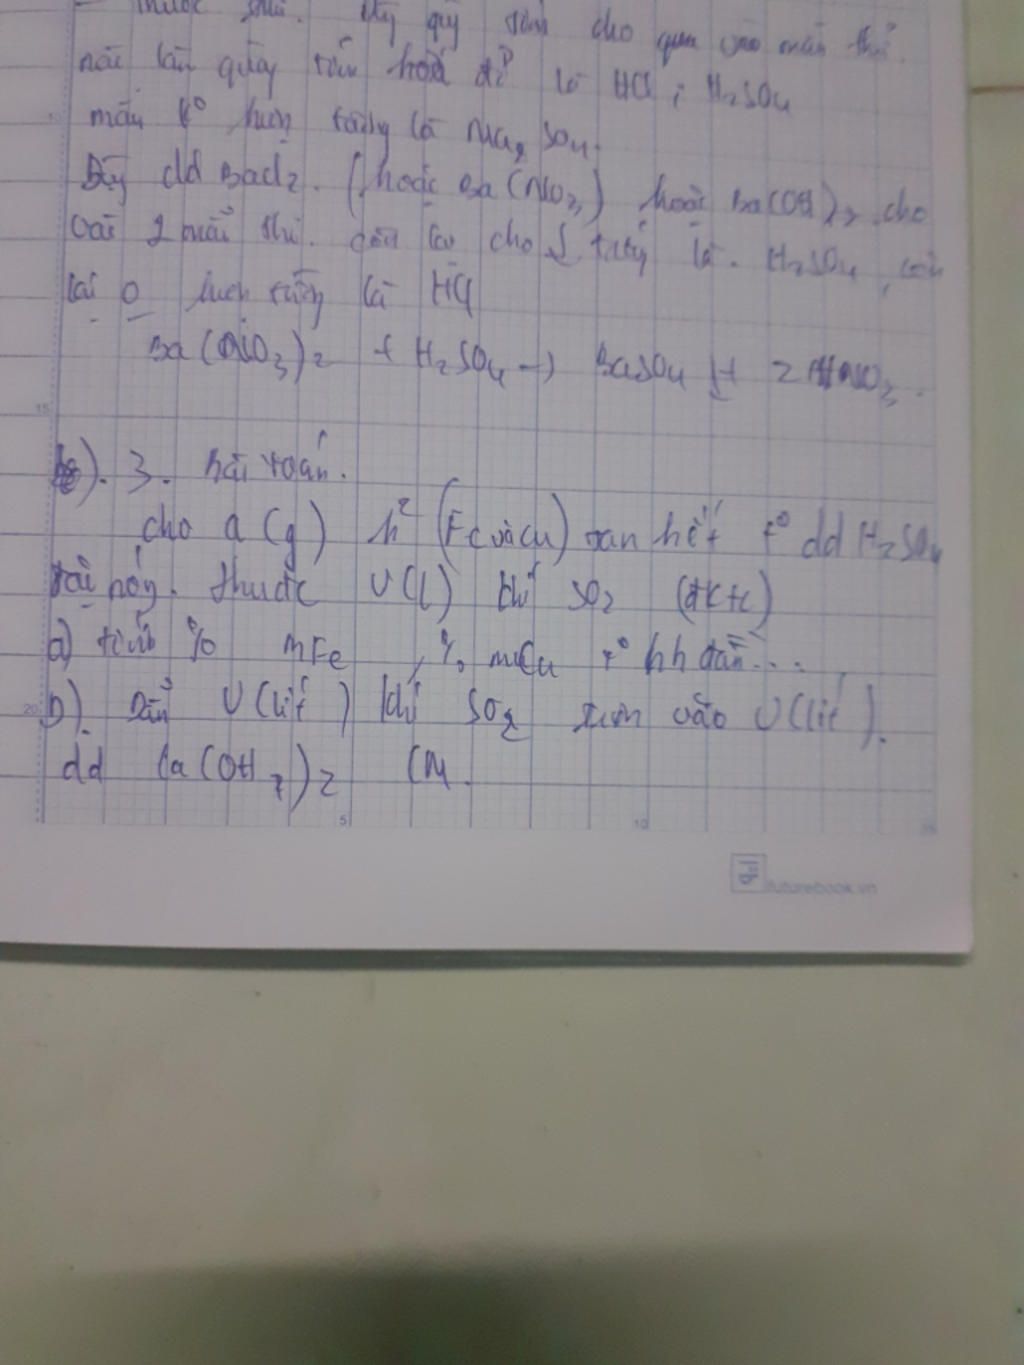 thuốc thử. lấy quỳ tím cho qua vào mẫu thử.
nào làm quỳ tím hoá đỏ là HCl, H₂SO₄
mẫu k° hiện tượng là Na₂SO₄.
Lấy dd BaCl₂. (hoặc Ba(NO₃) hoặc Ba(OH)₂ cho
vào 2 mẫu thử. cho ↓ trắng là. H₂SO₄, còn
lại 0 hiện tượng là HCl
Ba(NO₃)₂ + H₂SO₄ → BaSO₄ ↓ + 2HNO₃.
15
3. bài toán.
cho a (g) h² (Fe và Cu) tan hết t° dd H₂SO₄
nóng. thuđc V(l) khí SO₂ (đktc)
a) tính % mFe, % mCu t° hh đầu...
20
b). Dẫn V(lít) khí SO₂ trên vào V(lít).
dd Ca(OH)₂ CM.
5 10 15
futurebook.vn